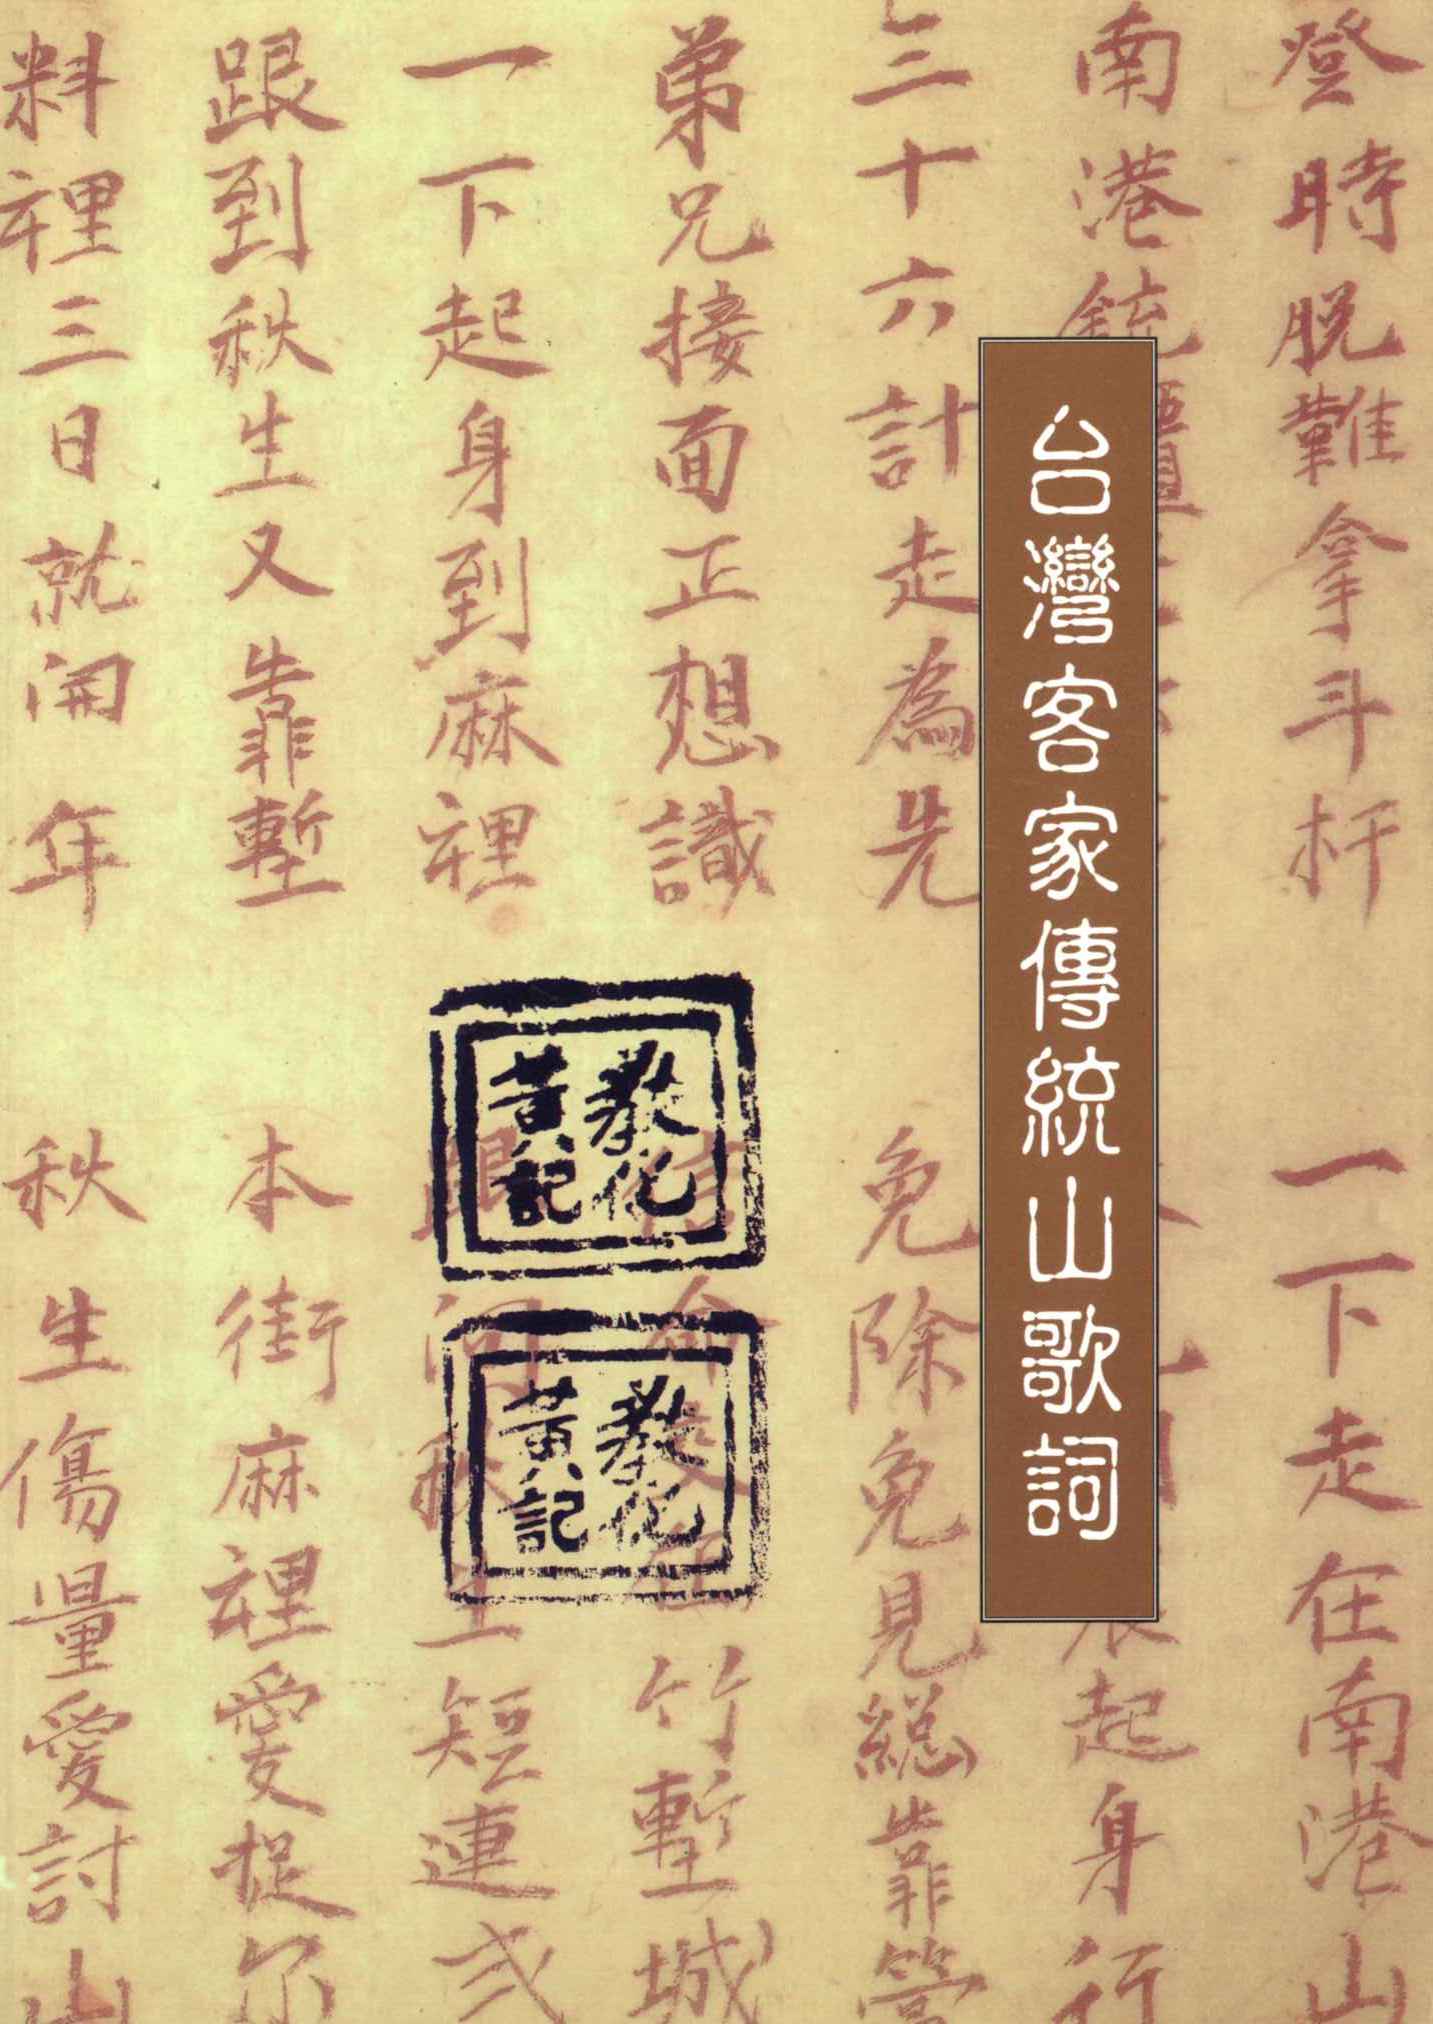 登時脫難拿斗杆
一下走在南港山
南港銃櫃
起身行
三十六計走為先
免除免見總靠營
弟兄接面正想識
竹塹城
一下起身到麻裡
短連
跟到秋生又靠塹
本街麻裡愛捉尔
料裡三日就開年
秋生傷量愛討山
台灣客家傳統山歌詞
教化
黃記
教化
黃記